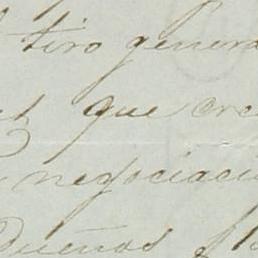 tiro genera
que cre
negociaci
Dueños